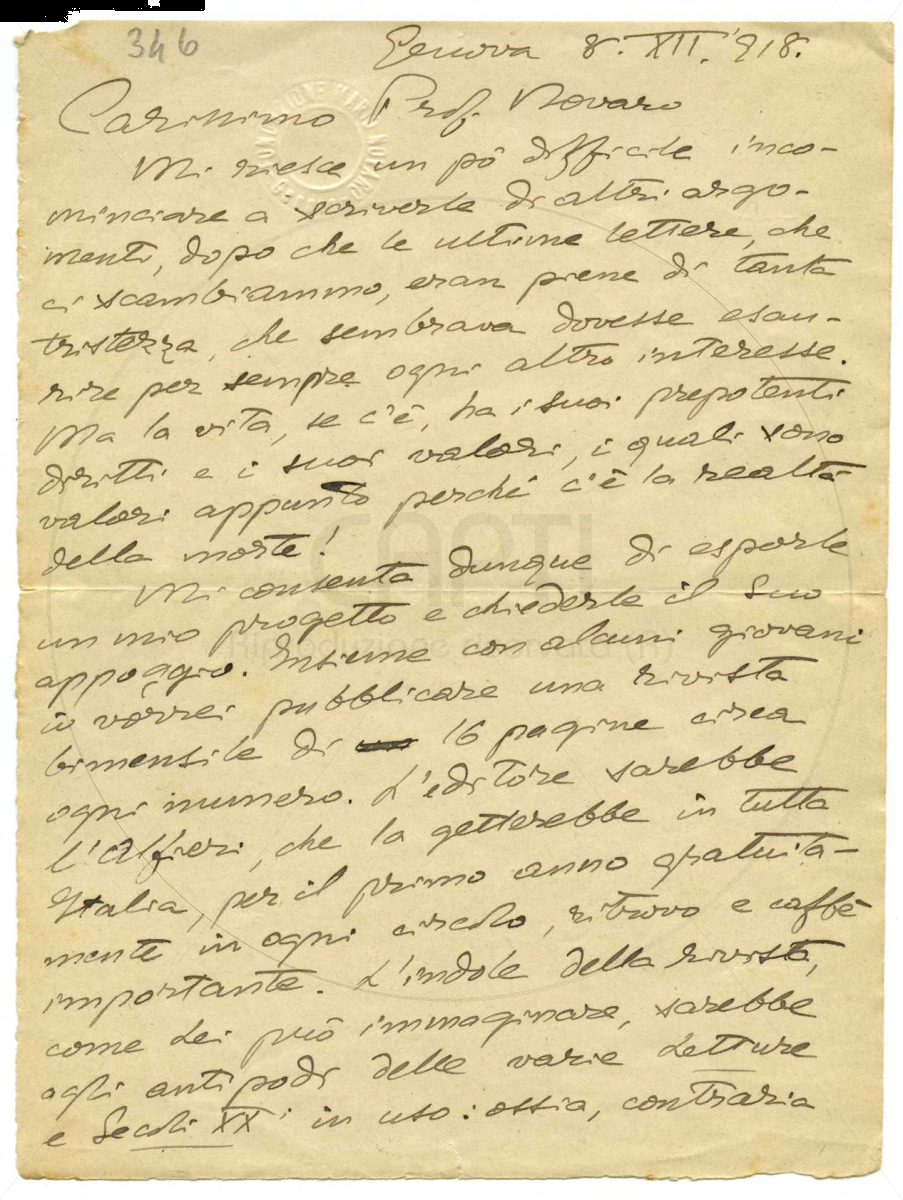 346
Genova 8. XII. '918.
Carissimo Prof. Novaro
Mi riesce un pò difficile inco-
minciare a scriverle di altri argo-
menti, dopo che le ultime lettere, che
ci scambiammo, eran piene di tanta
tristezza, che sembrava dovesse esau-
rire per sempre ogni altro interesse.
Ma la vita, se c'è, ha i suoi prepotenti
diritti e i suoi valori, i quali sono
valori appunto perchè c'è la realtà
della morte!
Mi consenta dunque di esporle
un mio progetto e chiederle il Suo
appoggio. Insieme con alcuni giovani
io vorrei pubblicare una rivista
bimensile di 16 pagine circa
ogni numero. L'editore sarebbe
l'Alfieri, che la getterebbe in tutta
Italia, per il primo anno gratuita-
mente in ogni circolo, ritrovo e caffè
importante. L'indole della rivista,
come Lei può immaginare, sarebbe
agli antipodi delle varie Letture
e Secoli XX i in uso: ossia, contraria
CAPTI
Riproduzione riservata (R)